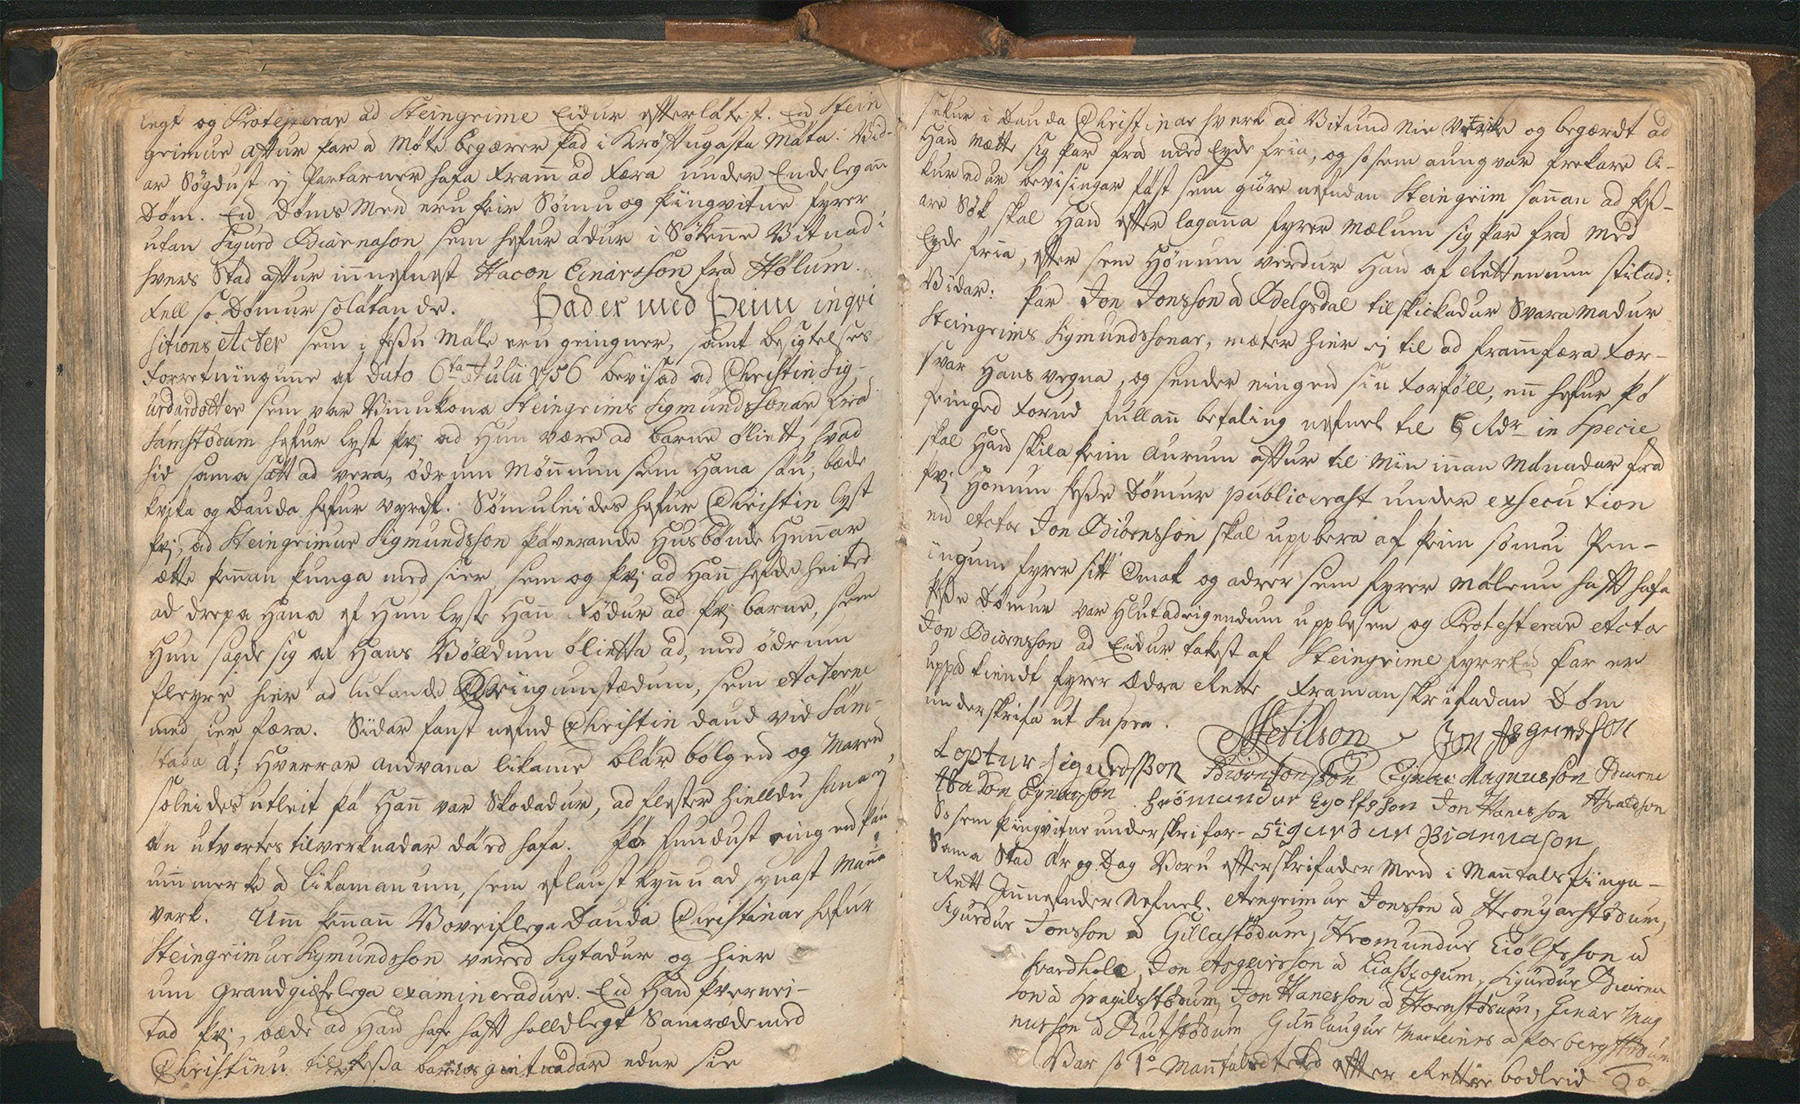 legt og Protesterar ad Steingrime Eidur efterlátest. En Stein
grimur aftur þar á móte begærer það i kröftugasta máta. Vid-
ar Sögdust ej Partarner hafa framm ad færa under Endelegann
Dóm. En Döms Men eru þeir Sömu og þingvitne fyrer
utan Sigurd Biarnason sem hefur ádur i Sökenne Vitnad i
hvers Stad aftur innefnest Hacon Einarsson frá Hólum.
fell so Dömur solátande. Þad er med Þeim inqvi
sitions Acter sem i þessu Mále eru geingner, samt besigtelses
forretningunne af Dato 6ta Julii 1756 bevisad ad Christin Sig-
urdardotter sem var Vinnukona Steingrims Sigmundssonar frá
Sámstödum hefur lyst þvi ad Hun være ad barne oliett, hvad
hid sama satt ad vera, ödrum Mönnum sem Hana sáu, bæde
kvika og Dauda hefur vyrdst. Sömuleides hefur Christin lyst
þvi, ad Steingrimur Sigmundsson þáverande Husbönde Hennar
ætte þennan þunga med sier sem og þvi ad Hann hefde heited
ad drepa Hana ef Hun lyste Hann födur ad þvi barne, sem
Hun sagde sig af Hans Völldum olietta ad, med ödrum
fleyre hier ad lutande Kringumstædum, sem Acterne
med sier færa. Sidar fanst nefnd Christin daud vid Sám-
stada á, Hverrar andvana likame blár bolgend og Mared
soleides utleit þá Hann var Skodadur, ad flester hielldu hana ej
án utvortes tilverknadar dáed hafa. Þó fundust eingen þau
umm merke á likamanum, sem eflaust kynnu ad synast Manna
verk. Um þennan Voveiflega Dauda Christinar hefur
Steingrimur Sigmundsson vered Sigtadur og hier
um grandgiæfelega examineradur. En Hann þvernei-
tad þvi, bæde ad Hann hafe haft holldlegt Samræde med
Christinu til þessa barns gietnadar edur sie
sekur i Dauda Christinar hverk ad Vitund nie Verke og begærdt ad
Han mætte sig þar frá med Eyde fria, og so sem aungvar frekare li-
kur edur bevisingar fást sem giöre nefndan Steingrim sannan ad þess-
are Sök skal Han efter laganna fyrer mælum sig þar frá med
Eyde fria, efter sem Hönum verdur Han af Rettenum stilad.
Vidar: þar Jon Jonsson á Belgsdal tilskickadur Svaramadur
Steingrims Sigmundssonar, mæter hier ej til ad frammfæra for-
svar Hans vegna, og sender eingen sin forföll, en hefur þo
feinged fornd fullann betaling nefnel. til 6 Rdr in Specie
skal Han skila þeim Aurum aftur til Min innan Mánadar frá
þvi Hönum þesse Dömur publicerast under execution
en Actor Jon Biörnsson skal uppbera af þeim sömu Pen-
ingum fyrer sitt Omak og adrer sem fyrer Málenu haft hafa
þesse Dömur var hlutadeigendum upplesen og Protesterar Actor
Jon Biörnsson ad Eidur takest af Steingrime fyrr En þar er
uppá kiendt fyrer Ædra Rette framanskrifadan Döm
underskrifa ut supra.
MKetilson Jon Asgeirsson
Loptur Sigurdsson Biörn Jonsson Einar Magnusson Biarne
Hakon Eynarsson Hrömundur Eyolfsson Jon Hanesson
So sem þingvitne underskrifar. Sigurdur Biarnason
Sama Stad Ár og Dag Voru efterskrifader Men i Manntals þinga-
Rett Innefnder Nefnel. Arngrimur Jonsson á Hrönyarstödum,
Sigurdur Jonsson á Gillastödum, Hromundur Eiölfsson á
Svardhole, Jon Asgeirsson á Liásskogum, Sigurdur Biarna
son á Spágilsstödum, Jon Hanesson á Hornstödum, Einar Mag
nusson á Rutstödum Gunnlaugur Marteins á Þorbergstödum
Var so 1o Manntaled teked efter Rettire bodleid